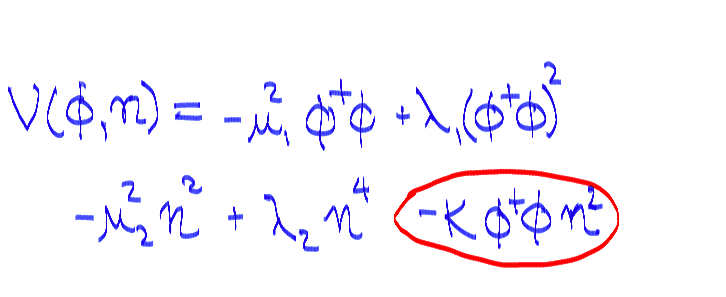 V(ϕ,η) = -μ₁² ϕ⁺ϕ + λ₁(ϕ⁺ϕ)²
-μ₂² η² + λ₂ η⁴ -κ ϕ⁺ϕ η²